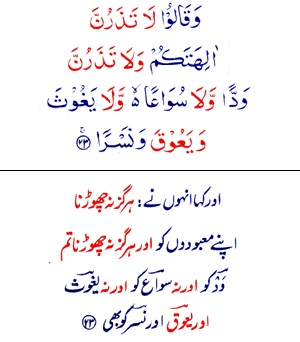 وَقَالُوْا لَا تَذَرُنَّ
اٰلِهَتَكُمْ وَلَا تَذَرُنَّ
وَدًّا وَّلَا سُوَاعًا ەۙ وَّلَا يَغُوْثَ
وَ يَعُوْقَ وَنَسْرًا ۚ ﴿۲۳﴾
اور کہا انہوں نے: ہرگز نہ چھوڑنا
اپنے معبودوں کو اور ہرگز نہ چھوڑنا تم
وَدّ کو اور نہ سواع کو اور نہ یغوث
اور یعوق اور نسر کو بھی ﴿۲۳﴾